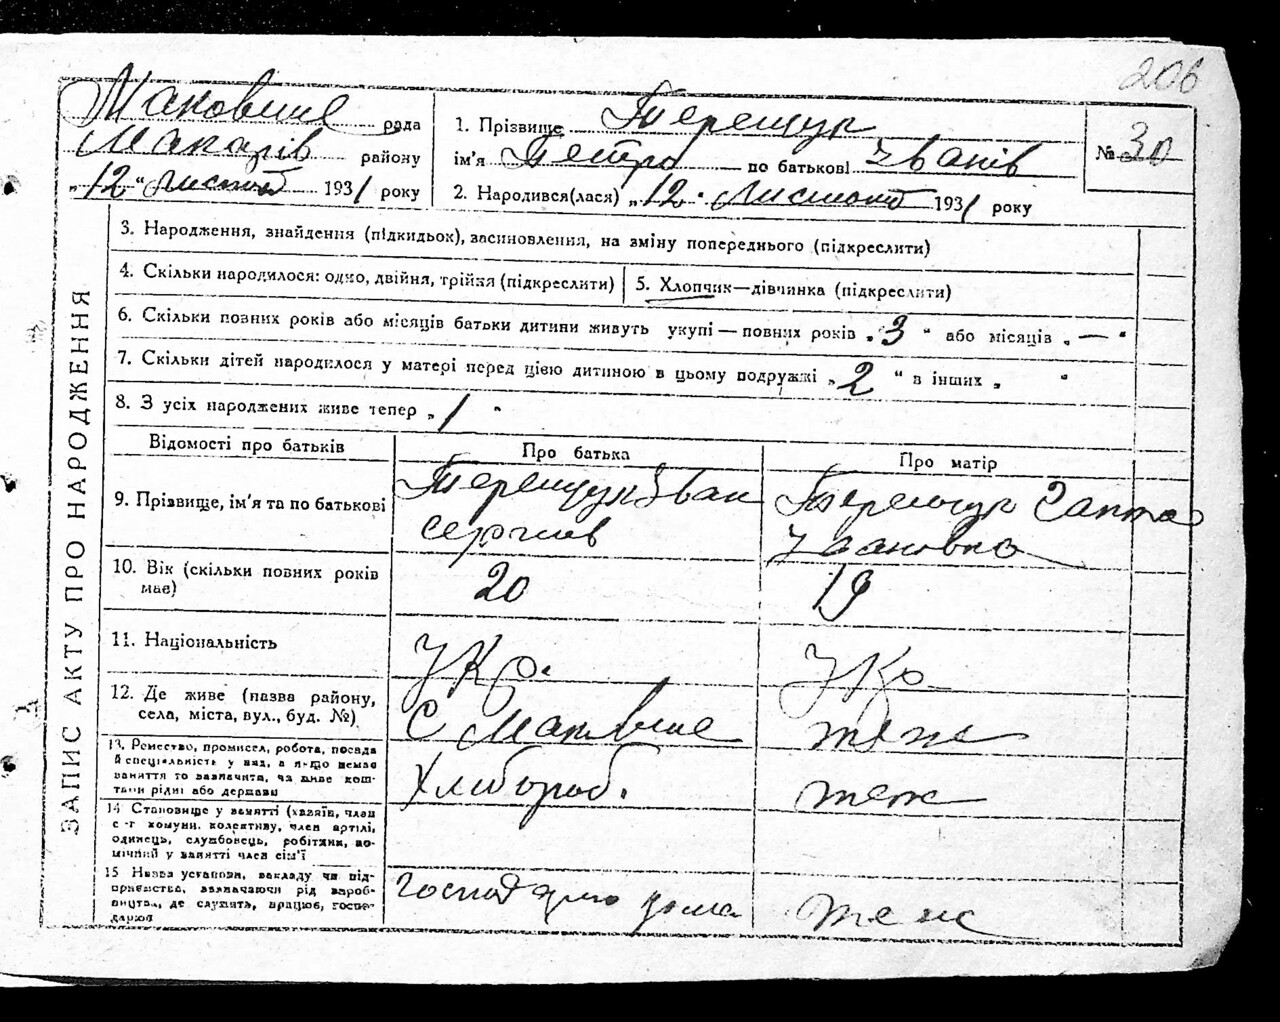 206
Маковище рада
Макарів району
„12“ Листоп 1931 року
1. Прізвище Терещук
ім'я Петро по батькові Іванів
2. Народився(лася) „12“ Листопад 1931 року
№ 30
ЗАПИС АКТУ ПРО НАРОДЖЕННЯ
3. Народження, знайдення (підкидьок), засиновлення, на зміну попереднього (підкреслити)
4. Скільки народилося: одно, двійня, трійня (підкреслити)
5. Хлопчик—дівчинка (підкреслити)
6. Скільки повних років або місяців батьки дитини живуть укупі — повних років „3“ або місяців „—“
7. Скільки дітей народилося у матері перед цією дитиною в цьому подружжі „2“ в інших „ “
8. З усіх народжених живе тепер „1“
Відомості про батьків
Про батька
Про матір
9. Прізвище, ім'я та по батькові
Терещук Іван
Сергіїв
Терещук Ганна
Івановна
10. Вік (скільки повних років
має)
20
19
11. Національність
Укр.
Укр
12. Де живе (назва району,
села, міста, вул., буд. №)
С Маковище
теж
13. Ремество, промисел, робота, посада
й спеціяльність у ній, а якщо немає
заняття то зазначити, чи живе кош-
тами рідні або держави
Хлібороб.
теж
14 Становище у занятті (хазяїн, член
с-г комуни, колективу, член артілі,
одинець, службовець, робітник, по-
мічний у занятті член сім'ї
15 Назва установи, закладу чи під-
приємства, зазначаючи рід вироб-
ництва, де служить, працює, госпо-
дарює
господарює дома
теж